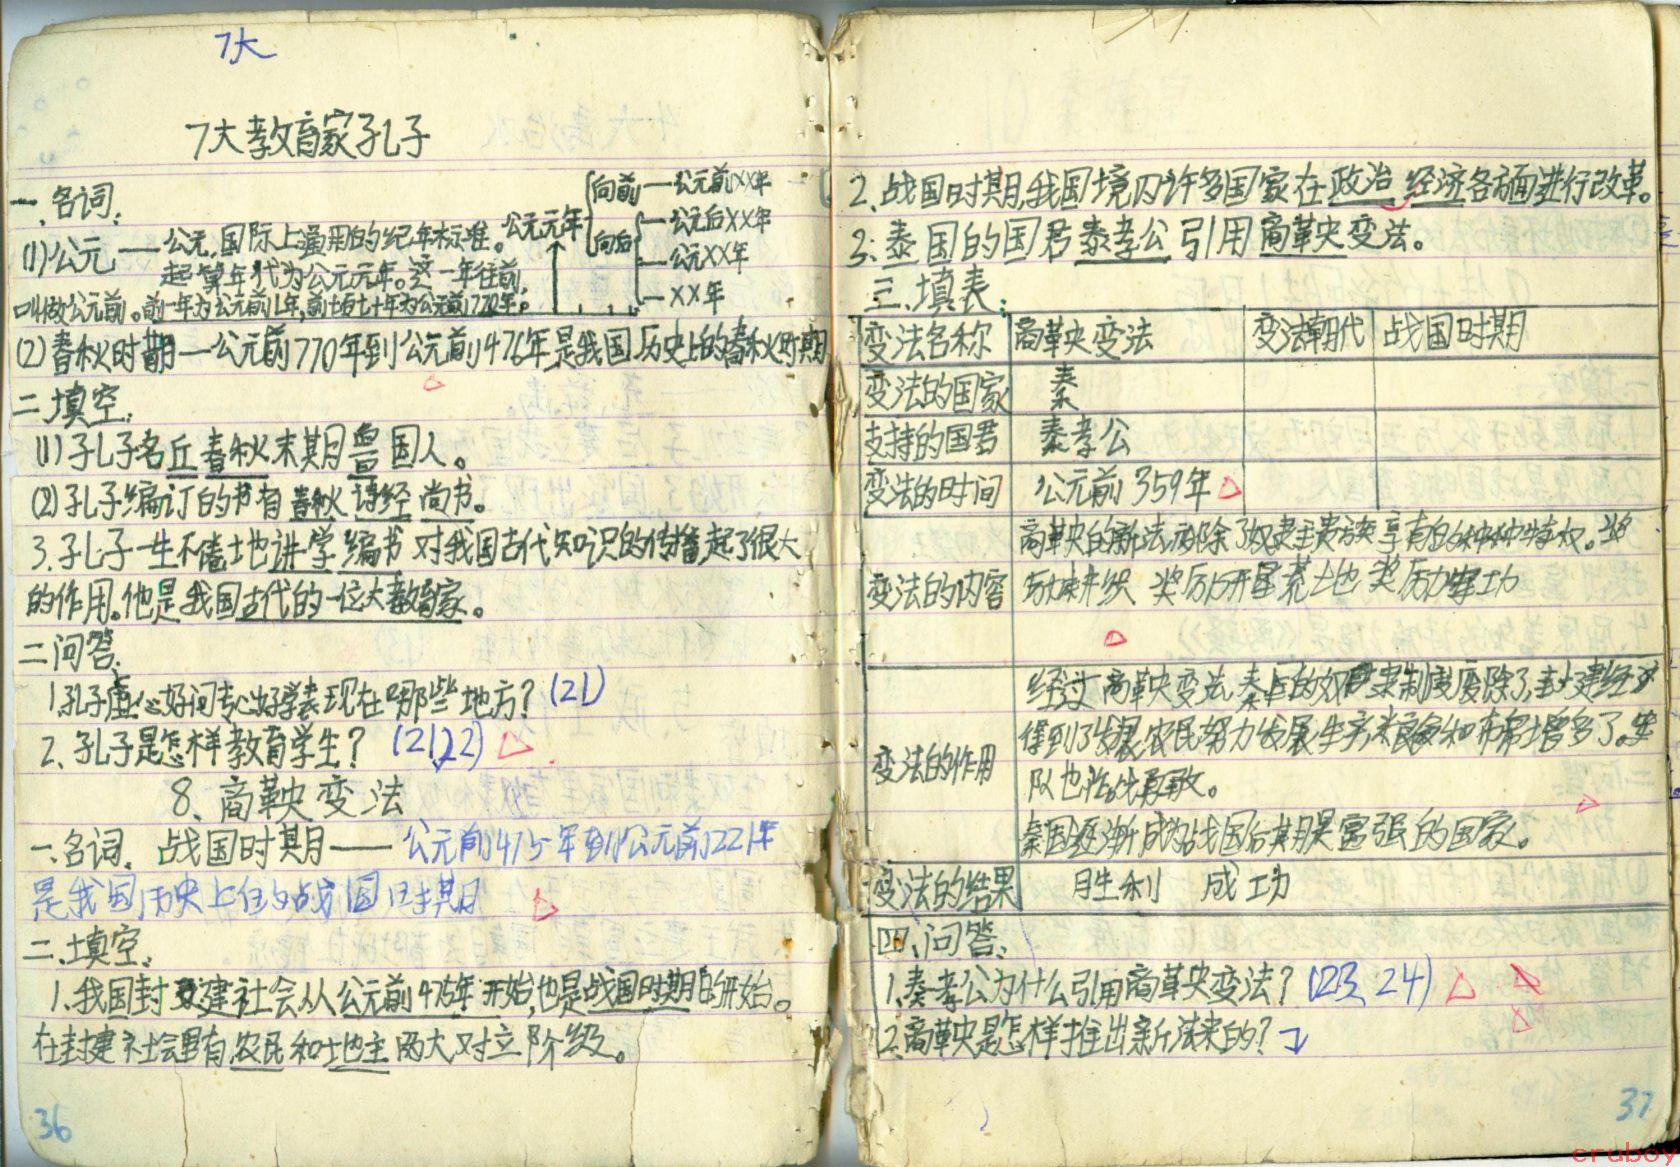 7大
7大教育家孔子
一、名词:
(1)公元——公元,国际上通用的纪年标准。
起算年代为公元元年。这一年往前,
叫做公元前。前一年为公元前1年,前七百七十年为公元前770年。
公元元年
向前——公元前XX年
向后——公元后XX年
——公元XX年
——XX年
(2)春秋时期——公元前770年到公元前476年是我国历史上的春秋时期
二.填空:
(1)孔子名丘春秋末期鲁国人。
(2)孔子编订的书有春秋诗经尚书。
3.孔子一生不倦地讲学编书对我国古代知识的传播起了很大
的作用。他是我国古代的一位大教育家。
二问答:
1.孔子虚心好问专心好学表现在哪些地方?(21)
2.孔子是怎样教育学生?(21,22)
8.商鞅变法
一.名词.战国时期——公元前475年到公元前221年
是我国历史上的战国时期
二.填空:
1.我国封建社会从公元前475年开始,也是战国时期的开始。
在封建社会里有农民和地主两大对立阶级。
36
2、战国时期,我国境内许多国家在政治、经济各方面进行改革。
3:秦国的国君秦孝公引用商鞅变法。
三.填表:
变法名称 商鞅变法 变法朝代 战国时期
变法的国家 秦
支持的国君 秦孝公
变法的时间 公元前359年
变法的内容 商鞅的新法废除了奴隶主贵族享有的种种特权。奖
励耕织 奖励开垦荒土地 奖励军功
变法的作用 经过商鞅变法,秦国的奴隶制度废除了,封建经济
得到了发展,农民努力发展生产,粮食和布帛增多了。军
队也作战勇敢。
秦国逐渐成为战国后期最富强的国家。
变法的结果 胜利 成功
四.问答:
1.秦孝公为什么引用商鞅变法?(23、24)
2.商鞅是怎样推出新法来的?
37
cruboy